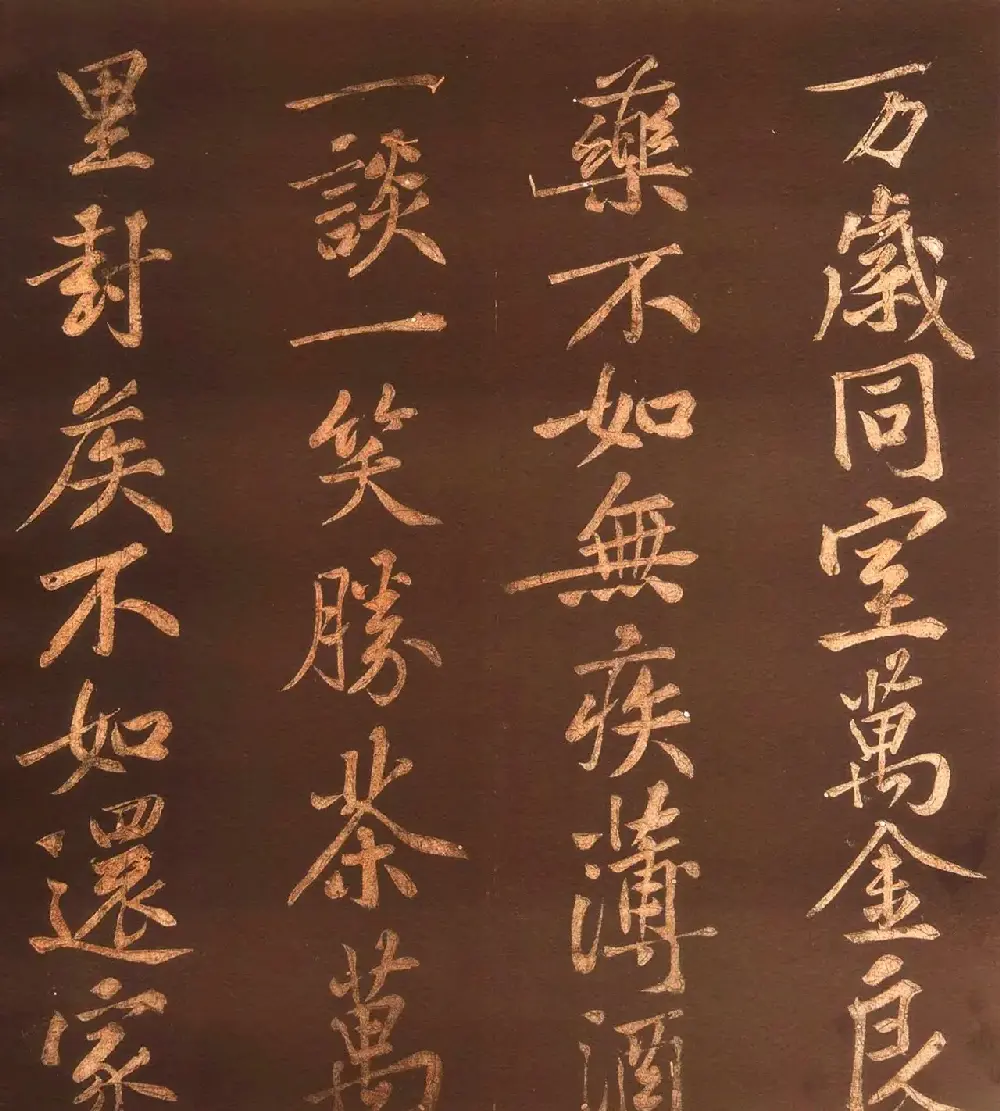 万歲同室萬金良
藥不如無疾薄酒
一談一笑勝茶萬
里封侯不如還家